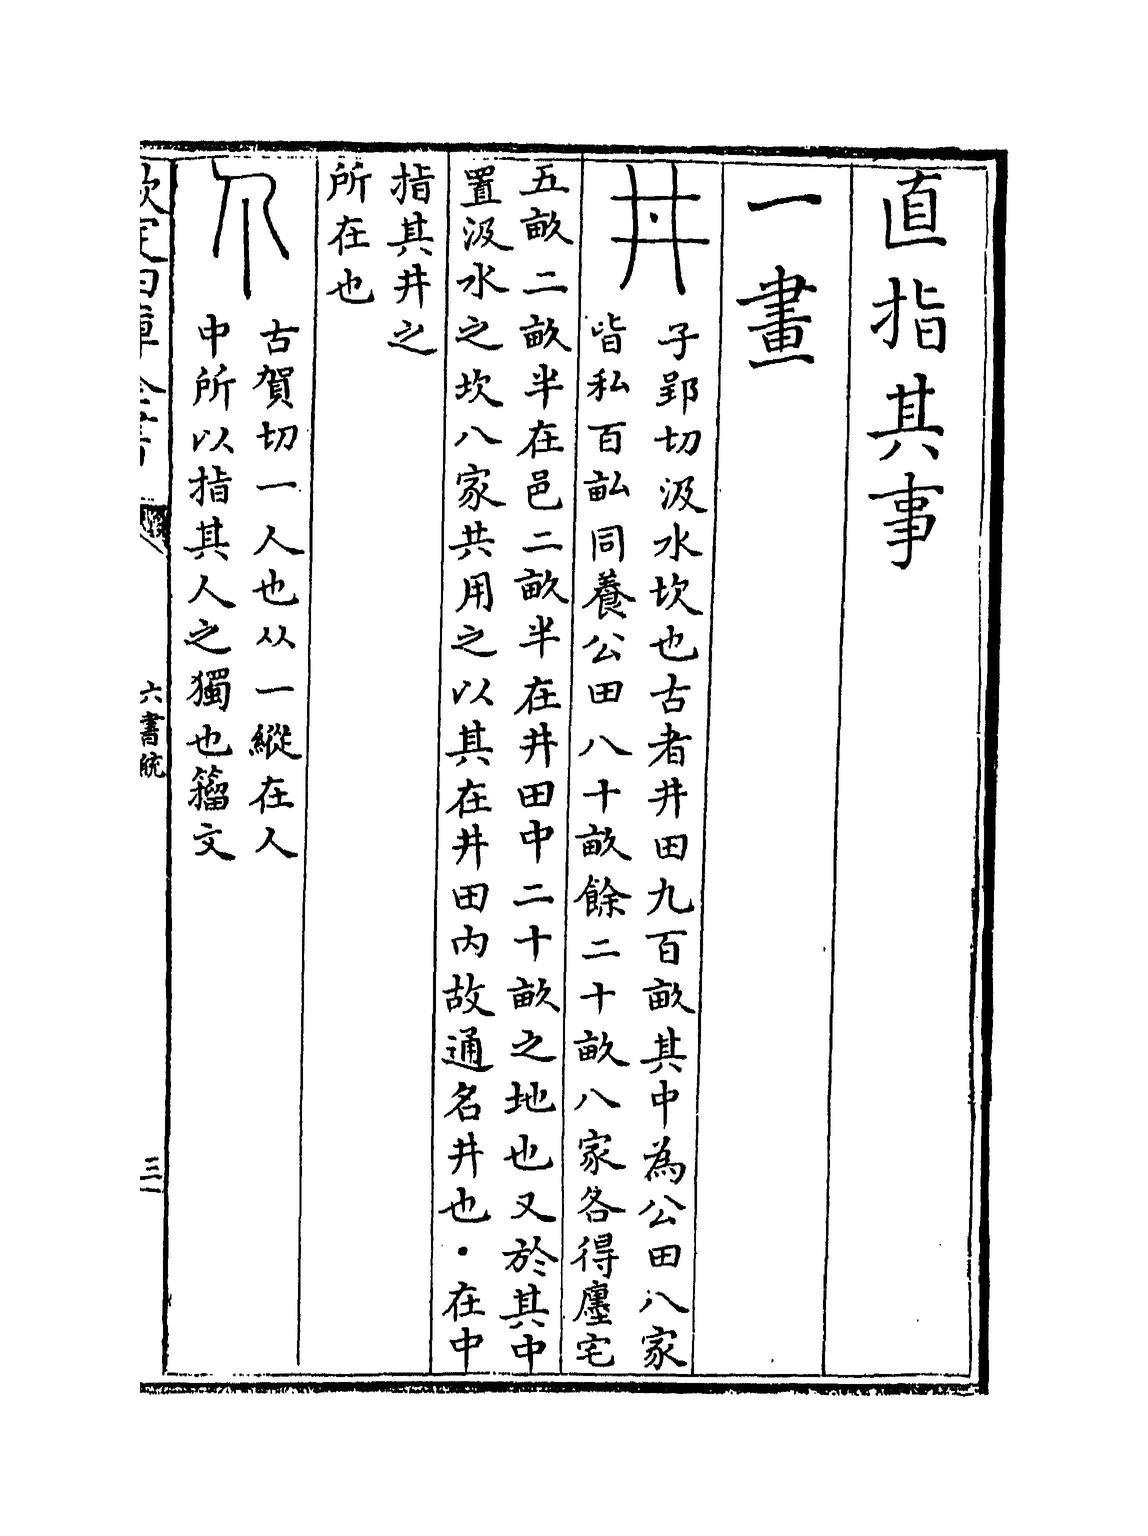 直指其事
一畫
丼
子郢切汲水坎也古者井田九百畝其中為公田八家
皆私百畝同養公田八十畝餘二十畝八家各得廛宅
五畝二畝半在邑二畝半在井田中二十畝之地也又於其中
置汲水之坎八家共用之以其在井田内故通名井也・在中
指其井之
所在也
古賀切一人也从一縱在人
中所以指其人之獨也籀文
六書統